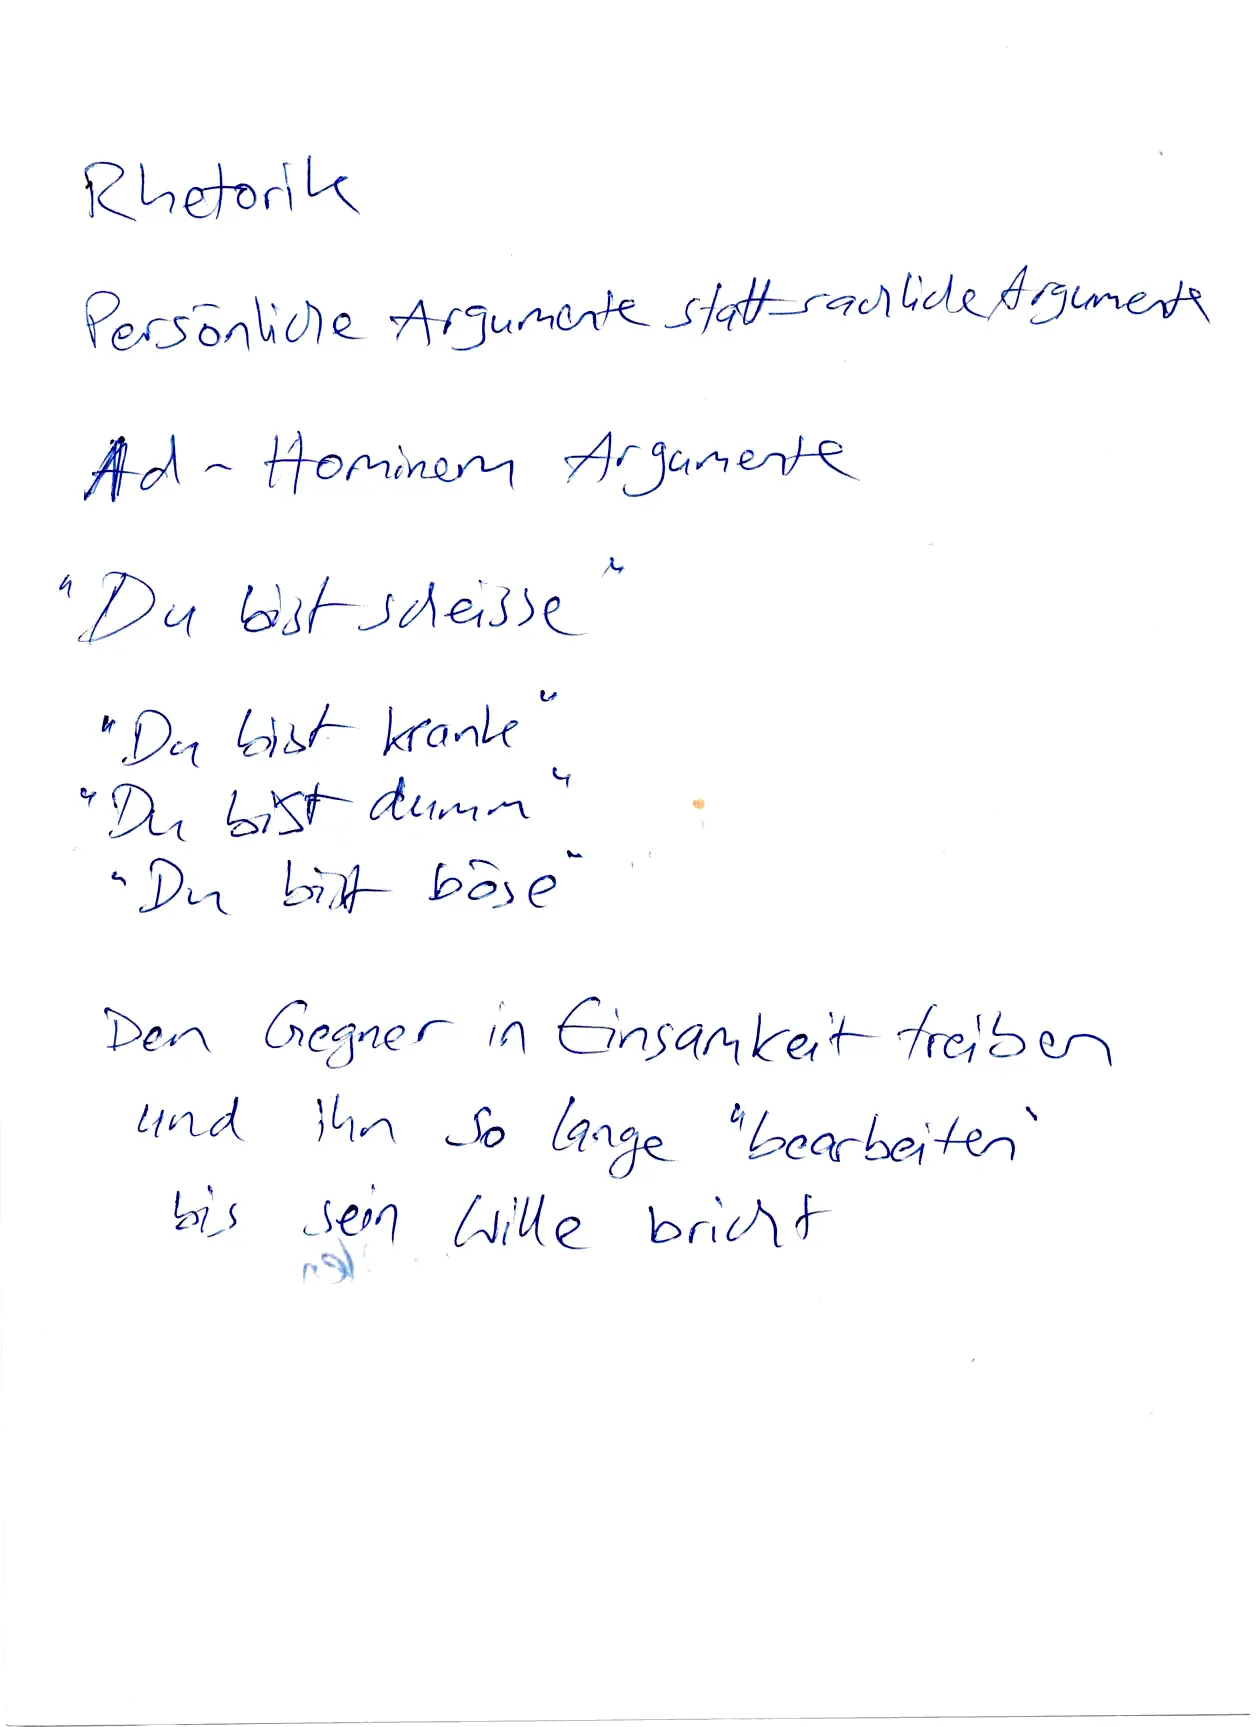 Rhetorik
Persönliche Argumente statt sachliche Argumente
Ad - Hominem Argumente
"Du bist scheisse"
"Du bist krank"
"Du bist dumm"
"Du bist böse"
Den Gegner in Einsamkeit treiben
und ihn so lange "bearbeiten"
bis sein Wille bricht